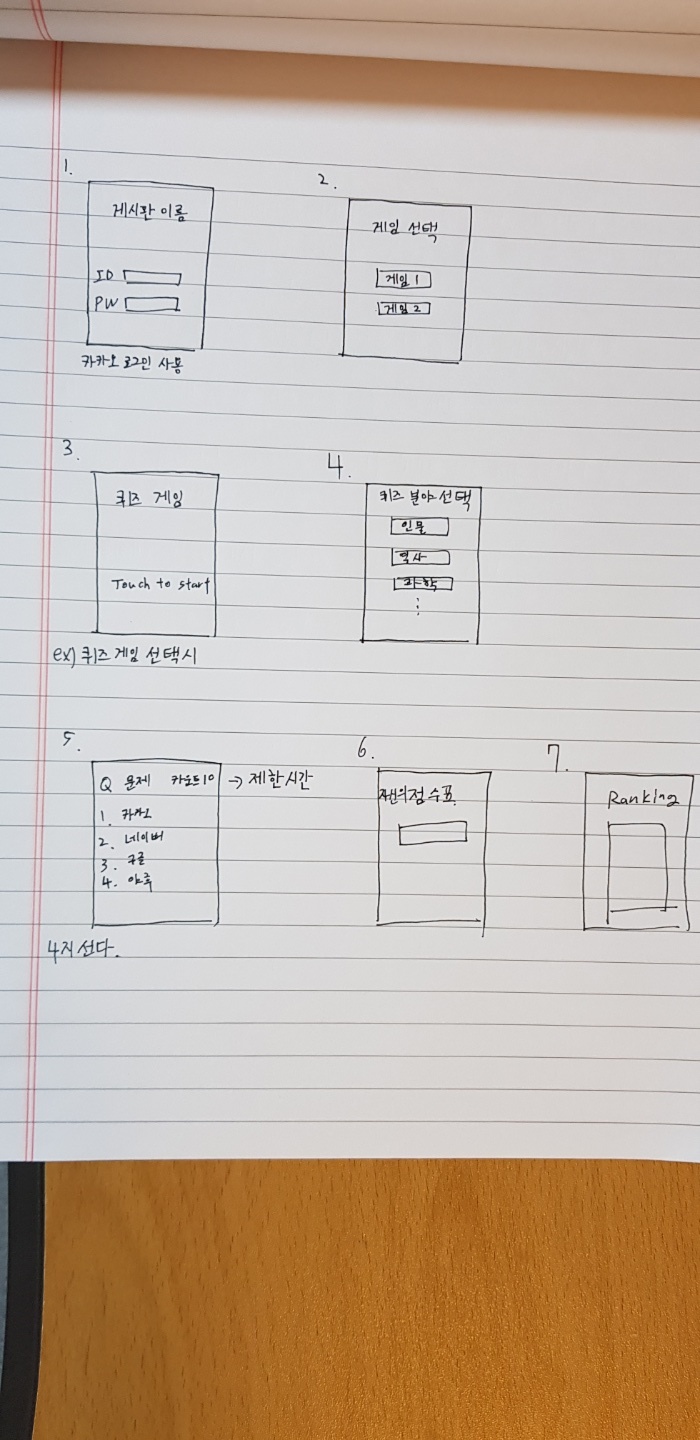 1.
게시판 이름
ID
PW
카카오 로그인 사용
2.
게임 선택
게임 1
게임 2
3.
퀴즈 게임
Touch to start
ex) 퀴즈 게임 선택시
4.
퀴즈 분야 선택
인물
역사
과학
5.
Q 문제 카운트10 → 제한시간
1. 카카오
2. 네이버
3. 구글
4. 야후
4지 선다.
6.
자신의 점수표.
7.
Ranking